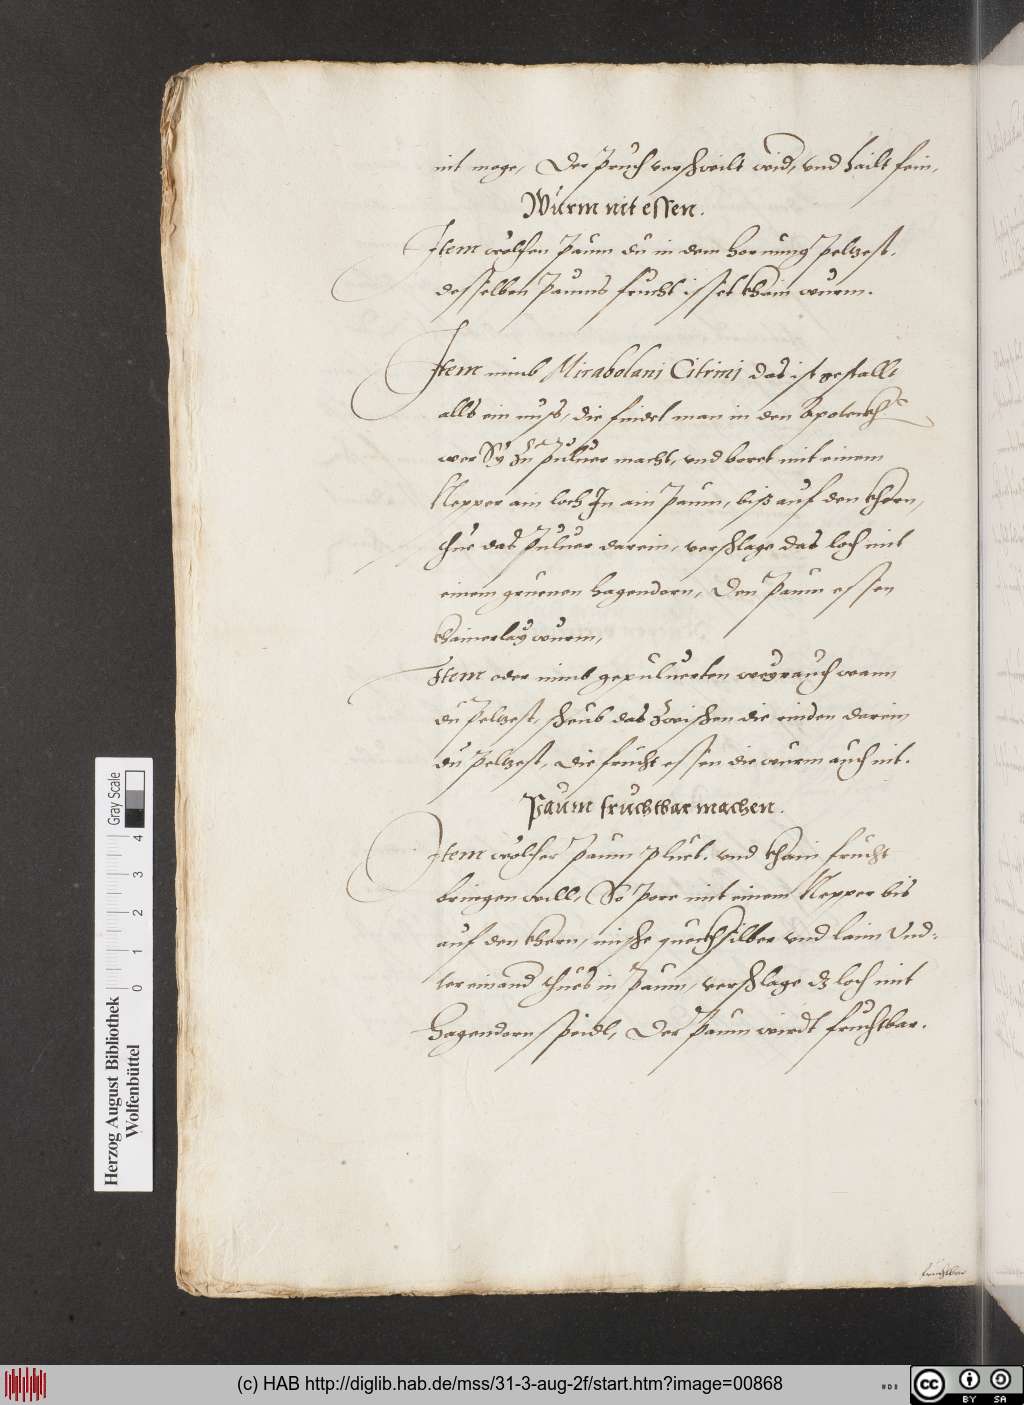 nit möge, Der Pruch verschwilt wid, und hailt sein.
Würm nit essen.
Item wölchen Paum du in dem hornung Peltzest.
desselben Paums frucht isset khain wurm.
Item nimb Mirabolani Citrini das ist gestallt
alls ein nuss, die findet man in den Apoteckh.
wer Sÿ zu Puluer macht, und boret mit einem
Nepper ain loch In ain Paum, biß auf den khern,
thue das Puluer darein, verschlage das loch mit
einem gruenen hagendorn, Den Paum essen
khainerlaÿ wurm,
Item oder nimb gepuluerten weyrauch wann
du Peltzest, scheub das zwischen die rinden darein
du Peltzest, die frücht essen die würm auch nit.
Paum fruchtbar machen.
Item wölcher Paum pluet. und khain frucht
bringen will, So Pore mit einem Nepper bis
auf den khern, mische queckhsilber und laim Und=
ter einand thues in Paum, verschlage dz loch mit
hagendorn speidl, Der Paum wirdt fruchtbar.
Herzog August Bibliothek
Wolfenbüttel
0 1 2 3 4
Gray Scale
(c) HAB http://diglib.hab.de/mss/31-3-aug-2f/start.htm?image=00868
cc BY SA